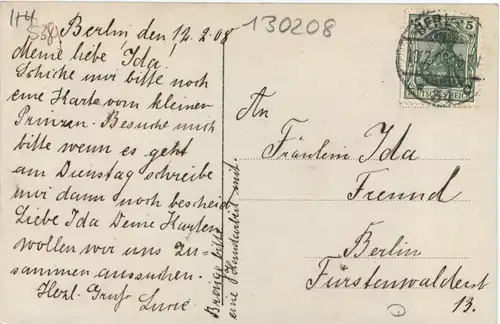 130208
Berlin den 12.2.08
Meine liebe Ida!
Schicke mir bitte noch
eine Karte vom kleinen
Prinzen. Besuche mich
bitte wenn es geht
am Dienstag schreibe
mir dann noch bescheid
Liebe Ida Deine Karten
wollen wir uns zu-
sammen aussuchen.
Herzl. Gruß
Bringe bitte
eine Handarbeit mit.
BERLIN
5
DEUTSCHES REICH
An
Fräulein Ida
Freund
Berlin
Fürstenwalderst
13.